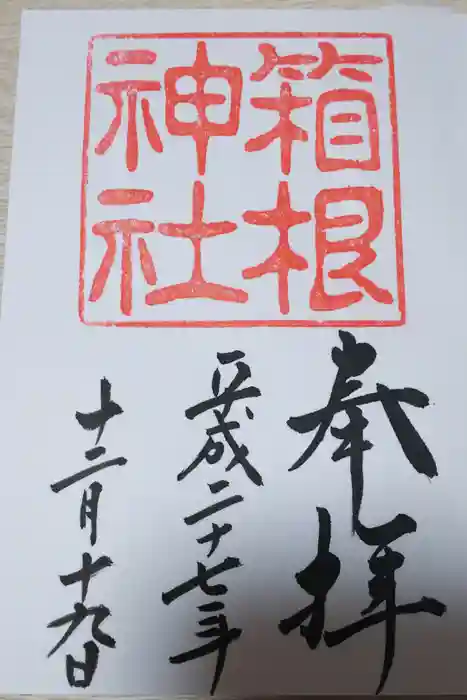 箱根
神社
奉拝
平成二十七年
十二月十九日